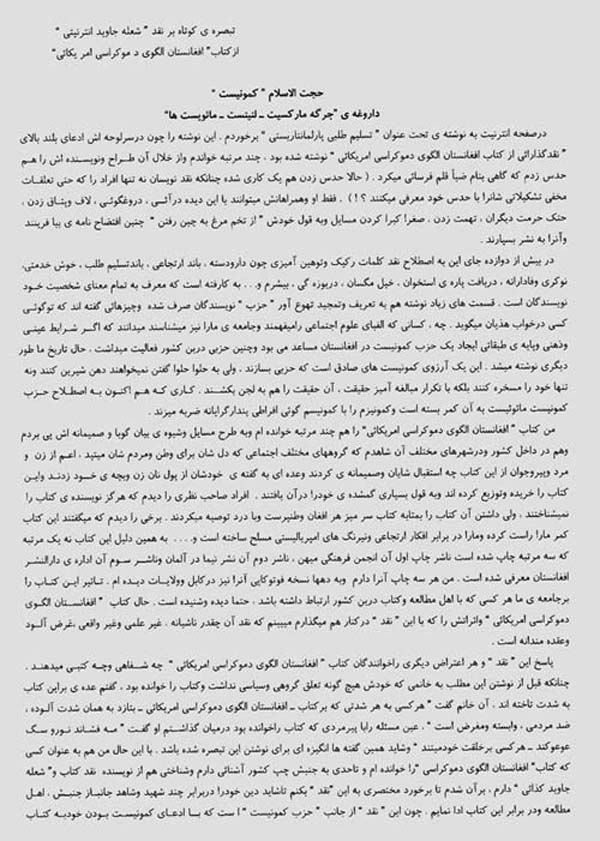 تبصره ی کوتاه بر نقد " شعله جاوید انترنیتی "
ازکتاب" افغانستان الگوی د موکراسی امر یکائی"
حجت الاسلام " کمونیست "
داروغه ی "جرگه مارکسیت ـ لنینست ـ مائویست ها"
درصفحه انترنیت به نوشته ی تحت عنوان " تسلیم طلبی پارلمانتاریستی " برخوردم . این نوشته را چون درسرلوحه اش ادعای بلند بالای
" نقدگذارائی از کتاب افغانستان الگوی دموکراسی امریکائی " نوشته شده بود ، چند مرتبه خواندم واز خلال آن طراح ونویسنده اش را هم
حدس زدم که گاهی بنام ضیأ قلم فرسائی میکرد . ( حالا حدس زدن هم یک کاری شده چنانکه نقد نویسان نه تنها افراد را که حتی تعلقات
مخفی تشکیلاتی شانرا با حدس خود معرفی میکنند ؟ ! ) . فقط او وهمراهانش میتوانند با این دیده درآئی ، دروغگوئی ، لاف وپتاق زدن ،
حتک حرمت دیگران ، تهمت زدن ، صغرا کبرا کردن مسایل وبه قول خودش " از تخم مرغ به چین رفتن " چنین افتضاح نامه ی بیا فرینند
وآنرا به نشر بسپارند .
در بیش از دوازده جای این به اصطلاح نقد کلمات رکیک وتوهین آمیزی چون دارودسته ، باند ارتجاعی ، باندتسلیم طلب ، خوش خدمتی،
نوکری وفادارانه ، دریافت پاره ی استخوان ، خیل مگسان ، دریوزه گی ، بیشرم و . . . به کارفته است که معرف به تمام معنای شخصیت خود
نویسندگان است . قسمت های زیاد نوشته هم به تعریف وتمجید تهوع آور " حزب " نویسندگان صرف شده وچیزهائی گفته اند که توگوئی
کسی درخواب هذیان میگوید . چه ، کسانی که الفبای علوم اجتماعی رامیفهمند وجامعه ی مارا نیز میشناسند میدانند که اگر شرایط عینی
وذهنی وپایه ی طبقاتی ایجاد یک حزب کمونیست در افغانستان مساعد می بود وچنین حزبی درین کشور فعالیت میداشت ، حال تاریخ ما طور
دیگری نوشته میشد . این یک آرزوی کمونیست های صادق است که حزبی بسازند ، ولی به حلوا حلوا گفتن نمیخواهند دهن شیرین کنند ونه
تنها خود را مسخره کنند بلکه با تکرار مبالغه آمیز حقیقت ، آن حقیقت را هم به لجن بکشند . کاری که هم اکنون به اصطلاح حزب
کمونیست مائوئیست به آن کمر بسته است وکمونیزم را با کمونیسم گوئی افراطی پندارگرایانه ضربه میزند .
من کتاب " افغانستان الگوی دموکراسی امریکائی" را هم چند مرتبه خوانده ام وبه طرح مسایل وشیوه ی بیان گویا و صمیمانه اش پی بردم
وهم در داخل کشور ودرشهرهای مختلف آن شاهدم که گروههای مختلف اجتماعی که دل شان برای وطن ومردم شان میتپد ، اعم از زن و
مرد وپیروجوان از این کتاب چه استقبال شایان وصمیمانه ی کردند وعده ای به گفته ی خودشان از پول نان زن وبچه ی خود زدند واین
کتاب را خریده وتوزیع کرده اند وبه قول بسیاری گمشده ی خودرا درآن یافتند . افراد صاحب نظری را دیدم که هرگز نویسنده ی کتاب را
نمیشناختند ، ولی داشتن آن کتاب را بمثابه کتاب سر میز هر افغان وطنپرست وبا درد توصیه میکردند . برخی را دیدم که میگفتند این کتاب
کمر مارا راست کرده ومارا در برابر افکار ارتجاعی ونیرنگ های امپریالیستی مسلح ساخته است و . . . . به همین دلیل این کتاب نه یک مرتبه
که سه مرتبه چاپ شده است ناشر چاپ اول آن انجمن فرهنگی میهن ، ناشر دوم آن نشر نیما در آلمان وناشر سوم آن اداره ی دارالنشر
افغانستان معرفی شده است . من هر سه چاپ آنرا دارم وبه دهها نسخه فوتوکاپی آنرا نیز درکابل وولایات دیده ام . تاثیر این کتاب را
برجامعه ی ما هر کسی که با اهل مطالعه وکتاب درین کشور ارتباط داشته باشد ، حتما دیده وشنیده است . حال کتاب " افغانستان الگوی
دموکراسی امریکائی " واثراتش را که با این " نقد " درکنار هم میگذارم میبینم که نقد آن چقدر ناشیانه ، غیر علمی وغیر واقعی ،غرض آلود
وعقده مندانه است .
پاسخ این " نقد " و هر اعتراض دیگری راخوانندگان کتاب " افغانستان الگوی دموکراسی امریکائی " چه شفاهی وچه کتبی میدهند .
چنانکه قبل از نوشتن این مطلب به خانمی که خودش هیچ گونه تعلق گروهی وسیاسی نداشت وکتاب را خوانده بود ، گفتم عده ی براین کتاب
به شدت تاخته اند . آن خانم گفت " هرکسی به هر شدتی که برکتاب ـ افغانستان الگوی دموکراسی امریکائی ـ بتازد به همان شدت آلوده ،
ضد مردمی ، وابسته ومغرض است " . عین مسئله رابا پیرمردی که کتاب راخوانده بود درمیان گذاشتم او گفت " مه فشاند نورو سگ
عوعوکند ـ هرکسی برخلقت خودمیتند " وشاید همین گفته ها انگیزه ای برای نوشتن این تبصره شده باشد . با این حال من هم به عنوان کسی
که کتاب" افغانستان الگوی دموکراسی "را خوانده ام و تاحدی به جنبش چپ کشور آشنائی دارم وشناختی هم از نویسنده نقد کتاب و"شعله
جاوید کذائی " دارم ، برآن شدم تا برخورد مختصری به این "نقد " بکنم تاشاید دین خودرا دربرابر چند شهید وشاهد جانباز جنبش ، اهل
مطالعه ودر برابر این کتاب ادا نمایم . چون این " نقد " از جانب " حزب کمونیست " ا ست که با ادعای کمونیست بودن خودبه کتاب